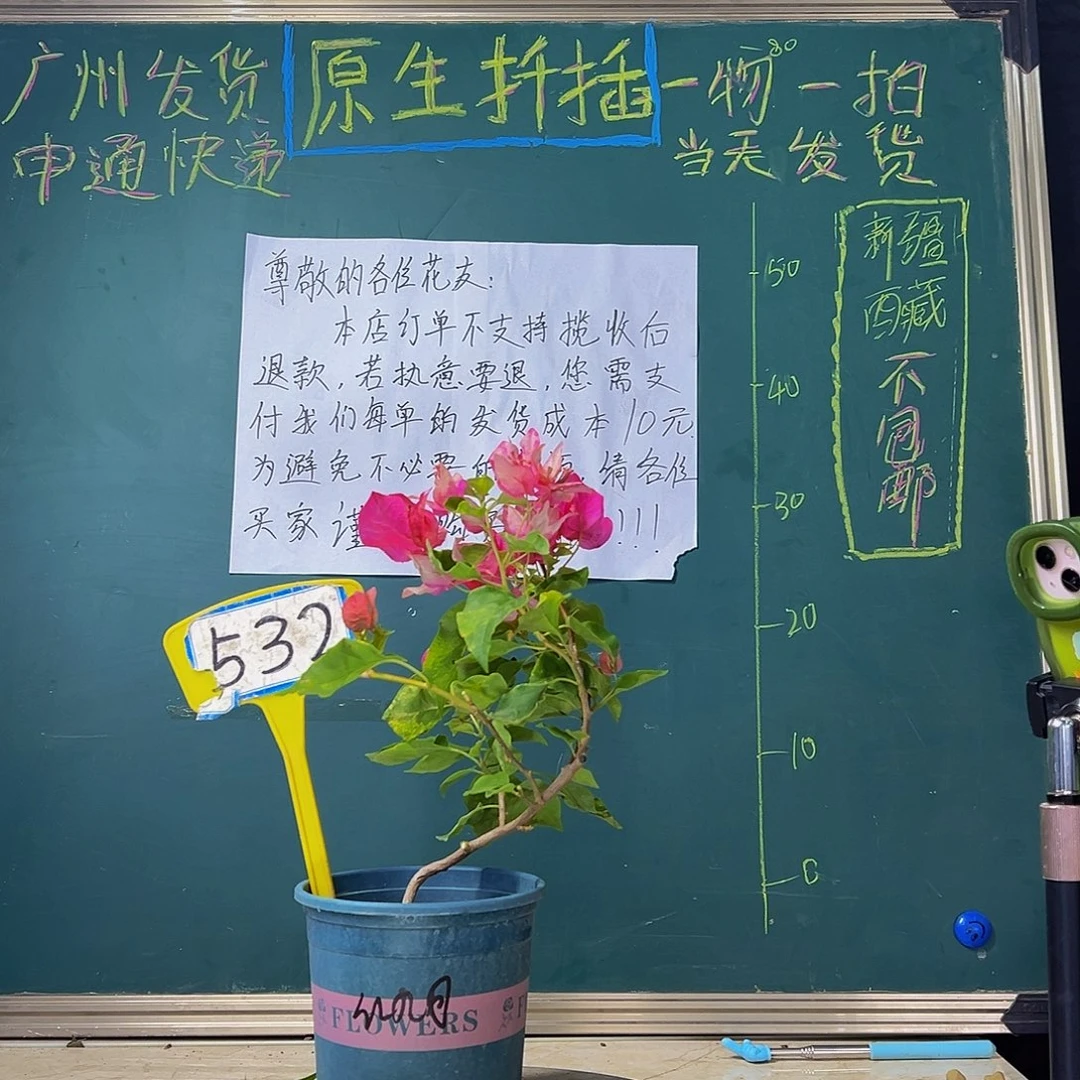 广州发货
原生扦插
一物一拍
80
申通快递
当天发货
新疆
西藏
不
包
邮
尊敬的各位花友:
本店订单不支持揽收后
退款,若执意要退,您需支
付我们每单的发货成本10元
为避免不必要的 请各位
买家谨 !!!
50
40
30
20
10
0
532
FLOWERS